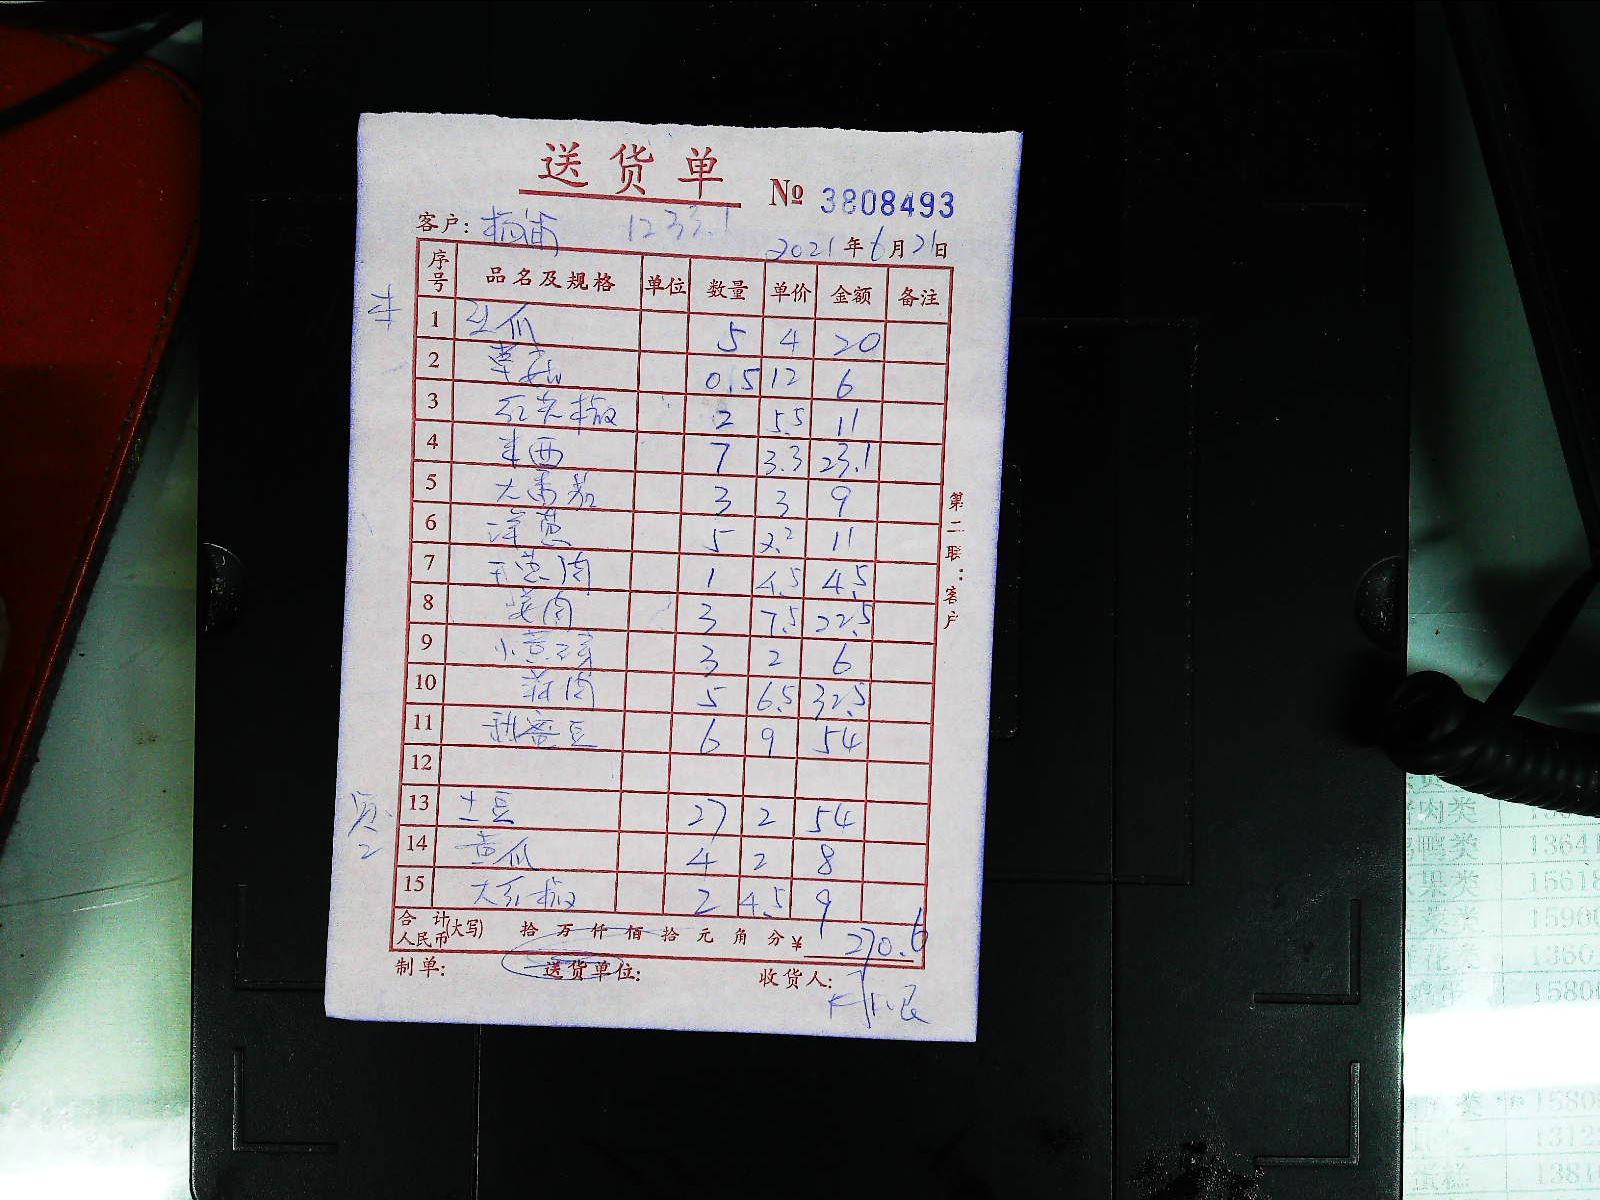 送货单
№ 3808493
客户: 杨浦 1233.1
2021年6月21日
序号 品名及规格 单位 数量 单价 金额 备注
1 5 4 20
2 草菇 0.5 12 6
3 红尖椒 2 5.5 11
4 本西 7 3.3 23.1
5 大番茄 3 3 9
6 洋葱 5 2.2 11
7 1 4.5 4.5
8 肉 3 7.5 22.5
9 小黄 3 2 6
10 肉 5 6.5 32.5
11 豆 6 9 54
12
13 土豆 27 2 54
14 黄瓜 4 2 8
15 大红椒 2 4.5 9
合计人民币(大写) 拾 万 仟 佰 拾 元 角 分 ¥ 270.6
制单: 送货单位: 收货人:
第二联:客户
肉类
鸭类 13641
果类 15618
菜类 1590
花类 1360
1580
类 1580
1312
蛋糕 1381